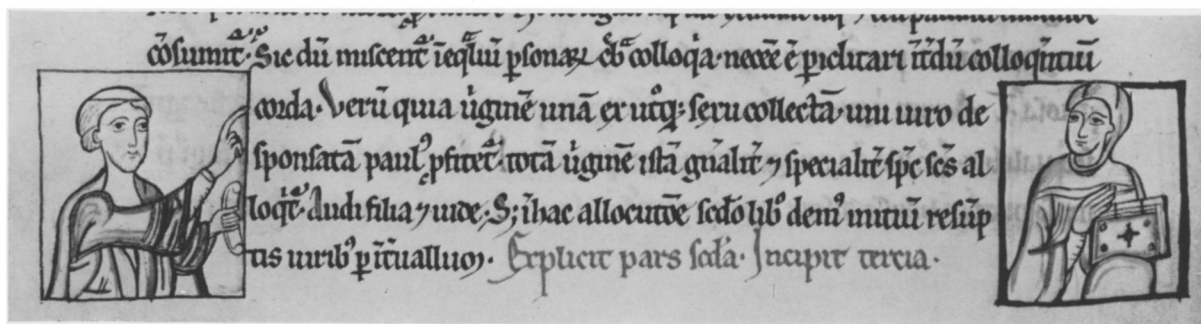 cōsumit᷒. Sic dū miscent᷒ ineqliū psonaꝝ crebra colloqia. necēe ē piclitari int̄dū colloqntiū
corda. Verū quia ūginē unā ex utoq; sexu collectā. uni uiro de
sponsatā paulꝰ pfitet᷒. totā ūginē istā gn̄alit᷒ ⁊ specialit᷒ sp̄c sc̄s al
loqit᷒. Audi filia ⁊ uide. S; in hac allocutōe scd̄o libꝰ demꝰ initiū resūp
tis uiribꝰ p int̄uallum. Explicit pars scd̄a. Incipit tercia.